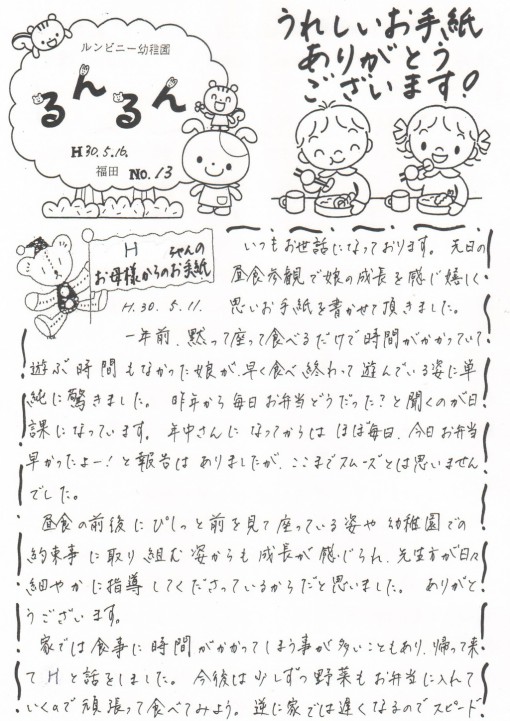 ルンビニー幼稚園
るんるん
H30.5.16.
福田 No.13
うれしいお手紙
ありがとう
ございます!
H ちゃんの
お母様からのお手紙
H.30.5.11.
いつもお世話になっております。先日の
昼食参観で娘の成長を感じ嬉しく
思いお手紙を書かせて頂きました。
一年前、黙って座って食べるだけで時間がかかっていて
遊ぶ時間もなかった娘が、早く食べ終わって遊んでいる姿に単
純に驚きました。昨年から毎日お弁当どうだった?と聞くのが日
課になっています。年中さんになってからはほぼ毎日、今日お弁当
早かったよー!と報告はありましたが、ここまでスムーズとは思いません
でした。
昼食の前後にぴしっと前を見て座っている姿や幼稚園での
約束事に取り組む姿からも成長が感じられ、先生方が日々
細やかに指導してくださっているからだと思いました。ありがと
うございます。
家では食事に時間がかかってしまう事が多いこともあり、帰って来
てHと話をしました。今後は少しずつ野菜もお弁当に入れて
いくので頑張って食べてみよう。逆に家では遅くなるのでスピード